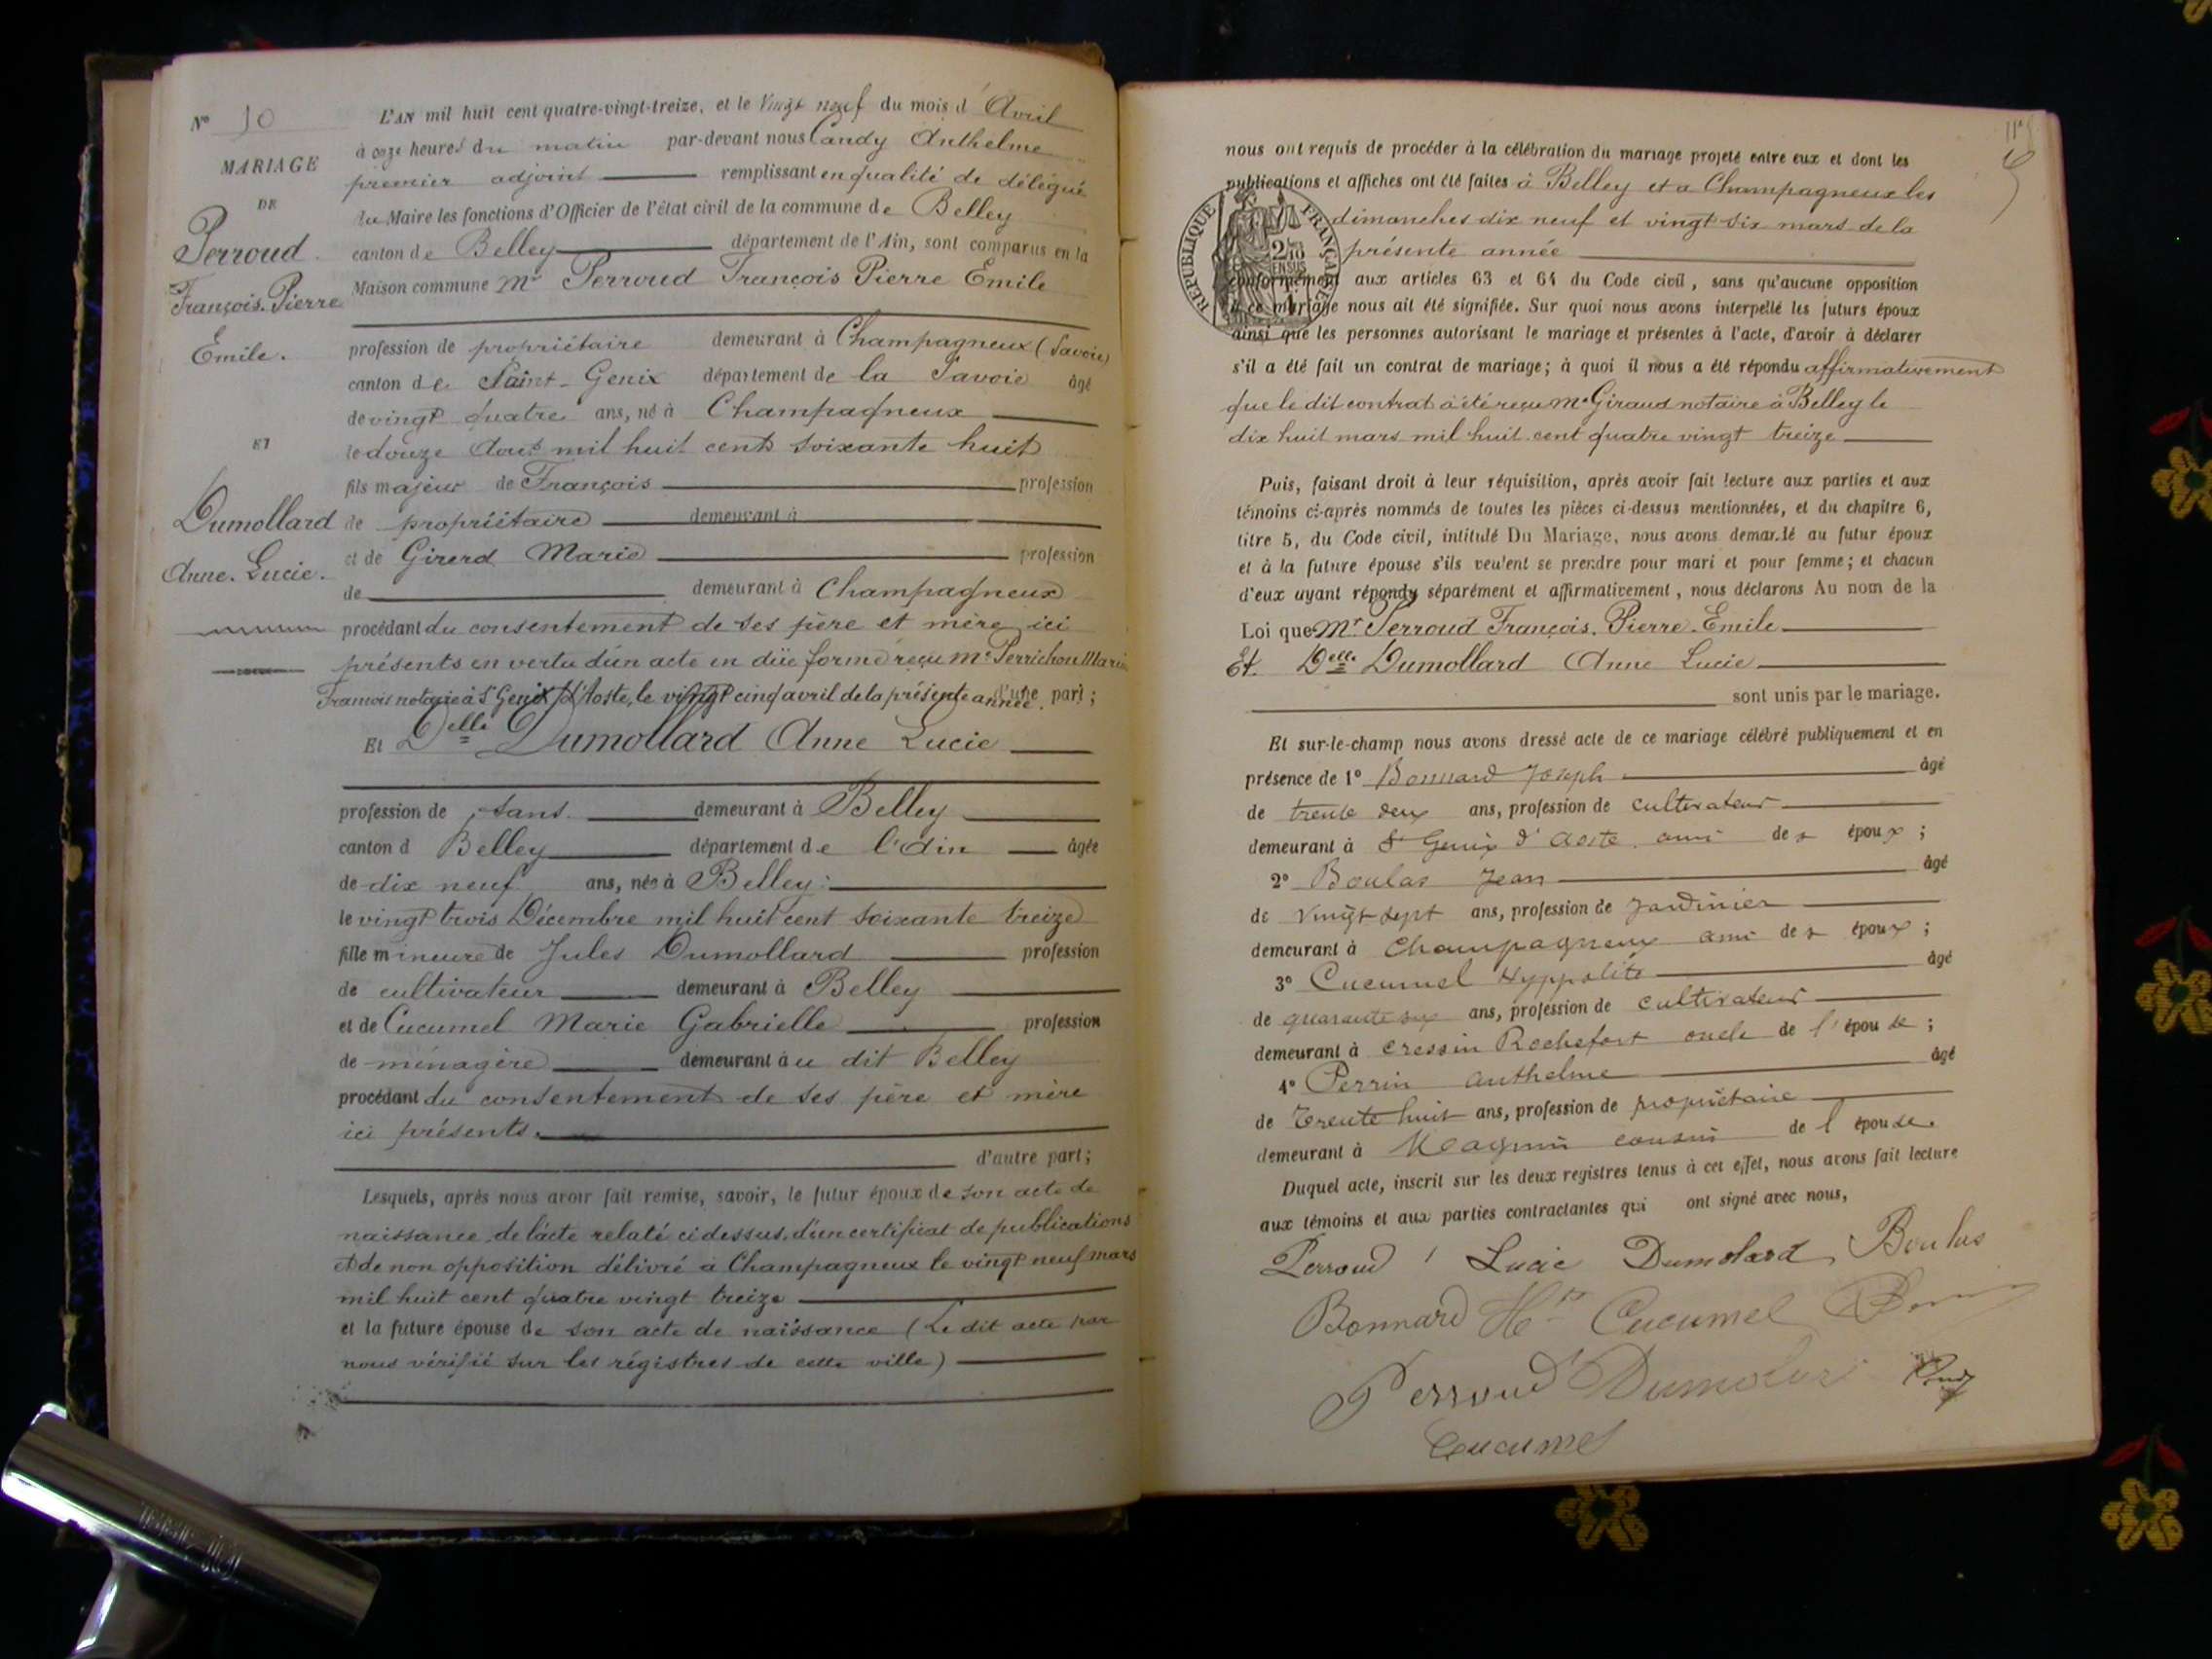 N° 10
L'AN mil huit cent quatre-vingt-treize, et le Vingt neuf du mois d'Avril
à onze heures du matin par-devant nous Candy Anthelme
MARIAGE
premier adjoint remplissant en qualité de délégué
DE
du Maire les fonctions d'Officier de l'état civil de la commune de Belley
Perroud
canton de Belley département de l'Ain, sont comparus en la
François. Pierre
Maison commune Mr Perroud François Pierre Emile
Emile.
profession de propriétaire demeurant à Champagneux (Savoie)
canton de Saint-Genix département de la Savoie âgé
de vingt quatre ans, né à Champagneux
ET
le douze Août mil huit cent soixante huit
fils majeur de François profession
Dumollard
de propriétaire demeurant à
Anne. Lucie.
et de Girerd Marie profession
de demeurant à Champagneux
procédant du consentement de ses père et mère ici
présents en vertu d'un acte en dûe forme reçu Me Perrichon Marie
François notaire à St Genix d'Aoste, le vingt cinq avril de la présente année. d'une part;
Et Delle Dumollard Anne Lucie
profession de sans demeurant à Belley
canton d Belley département de l'Ain âgée
de dix neuf ans, née à Belley
le vingt trois Décembre mil huit cent soixante treize
fille mineure de Jules Dumollard profession
de cultivateur demeurant à Belley
et de Cucumel Marie Gabrielle profession
de ménagère demeurant àu dit Belley
procédant du consentement de ses père et mère
ici présents.
d'autre part;
Lesquels, après nous avoir fait remise, savoir, le futur époux de son acte de
naissance de l'acte relaté ci dessus, d'un certificat de publications
et de non opposition délivré à Champagneux le vingt neuf mars
mil huit cent quatre vingt treize
et la future épouse de son acte de naissance (Le dit acte par
nous vérifié sur les régistres de cette ville)
nous ont requis de procéder à la célébration du mariage projeté entre eux et dont les
publications et affiches ont été faites à Belley et a Champagneux les
dimanches dix neuf et vingt six mars de la
présente année
REPUBLIQUE FRANÇAISE
2/10
EN SUS
conformément aux articles 63 et 64 du Code civil, sans qu'aucune opposition
à ce mariage nous ait été signifiée. Sur quoi nous avons interpellé les futurs époux
ainsi que les personnes autorisant le mariage et présentes à l'acte, d'avoir à déclarer
s'il a été fait un contrat de mariage; à quoi il nous a été répondu affirmativement
que le dit contrat à été reçu Me Giraud notaire à Belley le
dix huit mars mil huit cent quatre vingt treize
Puis, faisant droit à leur réquisition, après avoir fait lecture aux parties et aux
témoins ci-après nommés de toutes les pièces ci-dessus mentionnées, et du chapitre 6,
titre 5, du Code civil, intitulé Du Mariage, nous avons demandé au futur époux
et à la future épouse s'ils veulent se prendre pour mari et pour femme; et chacun
d'eux ayant répondu séparément et affirmativement, nous déclarons Au nom de la
Loi que Mr Perroud François. Pierre. Emile
Et. Delle Dumollard Anne Lucie
sont unis par le mariage.
Et sur-le-champ nous avons dressé acte de ce mariage célébré publiquement et en
présence de 1° Bonnard Joseph âgé
de trente deux ans, profession de cultivateur
demeurant à St Genix d'Aoste ami des époux;
2° Boulas Jean âgé
de vingt sept ans, profession de jardinier
demeurant à Champagneux ami des époux;
3° Cucumel Hyppolite âgé
de quarante six ans, profession de cultivateur
demeurant à Cressin Rochefort oncle de l'épouse;
4° Perrin Anthelme âgé
de Trente huit ans, profession de propriétaire
demeurant à Magnin cousin de l'épouse.
Duquel acte, inscrit sur les deux registres tenus à cet effet, nous avons fait lecture
aux témoins et aux parties contractantes qui ont signé avec nous,
Perroud Lucie Dumolard Boulas
Bonnard Hte Cucumel
Perroud Dumolard Candy
Cucumel